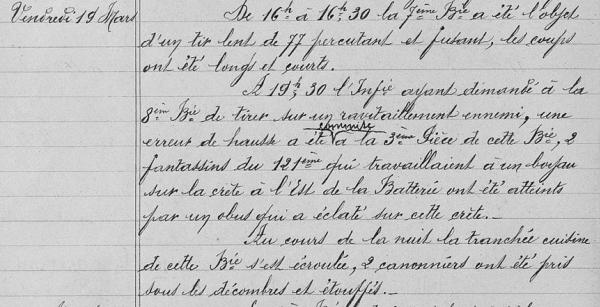 Vendredi 19 Mars
De 16h à 16h30 la 7ème Bie a été l'objet
d'un tir lent de 77 percutant et fusant, les coups
ont été longs et courts.
A 19h,30 l'Infie ayant demandé à la
8ème Bie de tirer sur un ravitaillement ennemi, une
erreur de hausse a été commise à la 3ème Pièce de cette Bie, 2
fantassins du 121ème qui travaillaient à un boyau
sur la crète à l'Est de la Batterie ont été atteints
par un obus qui a éclaté sur cette crète.
Au cours de la nuit la tranchée cuisine
de cette Bie s'est écroulée, 2 canonniers ont été pris
sous les décombres et étouffés.